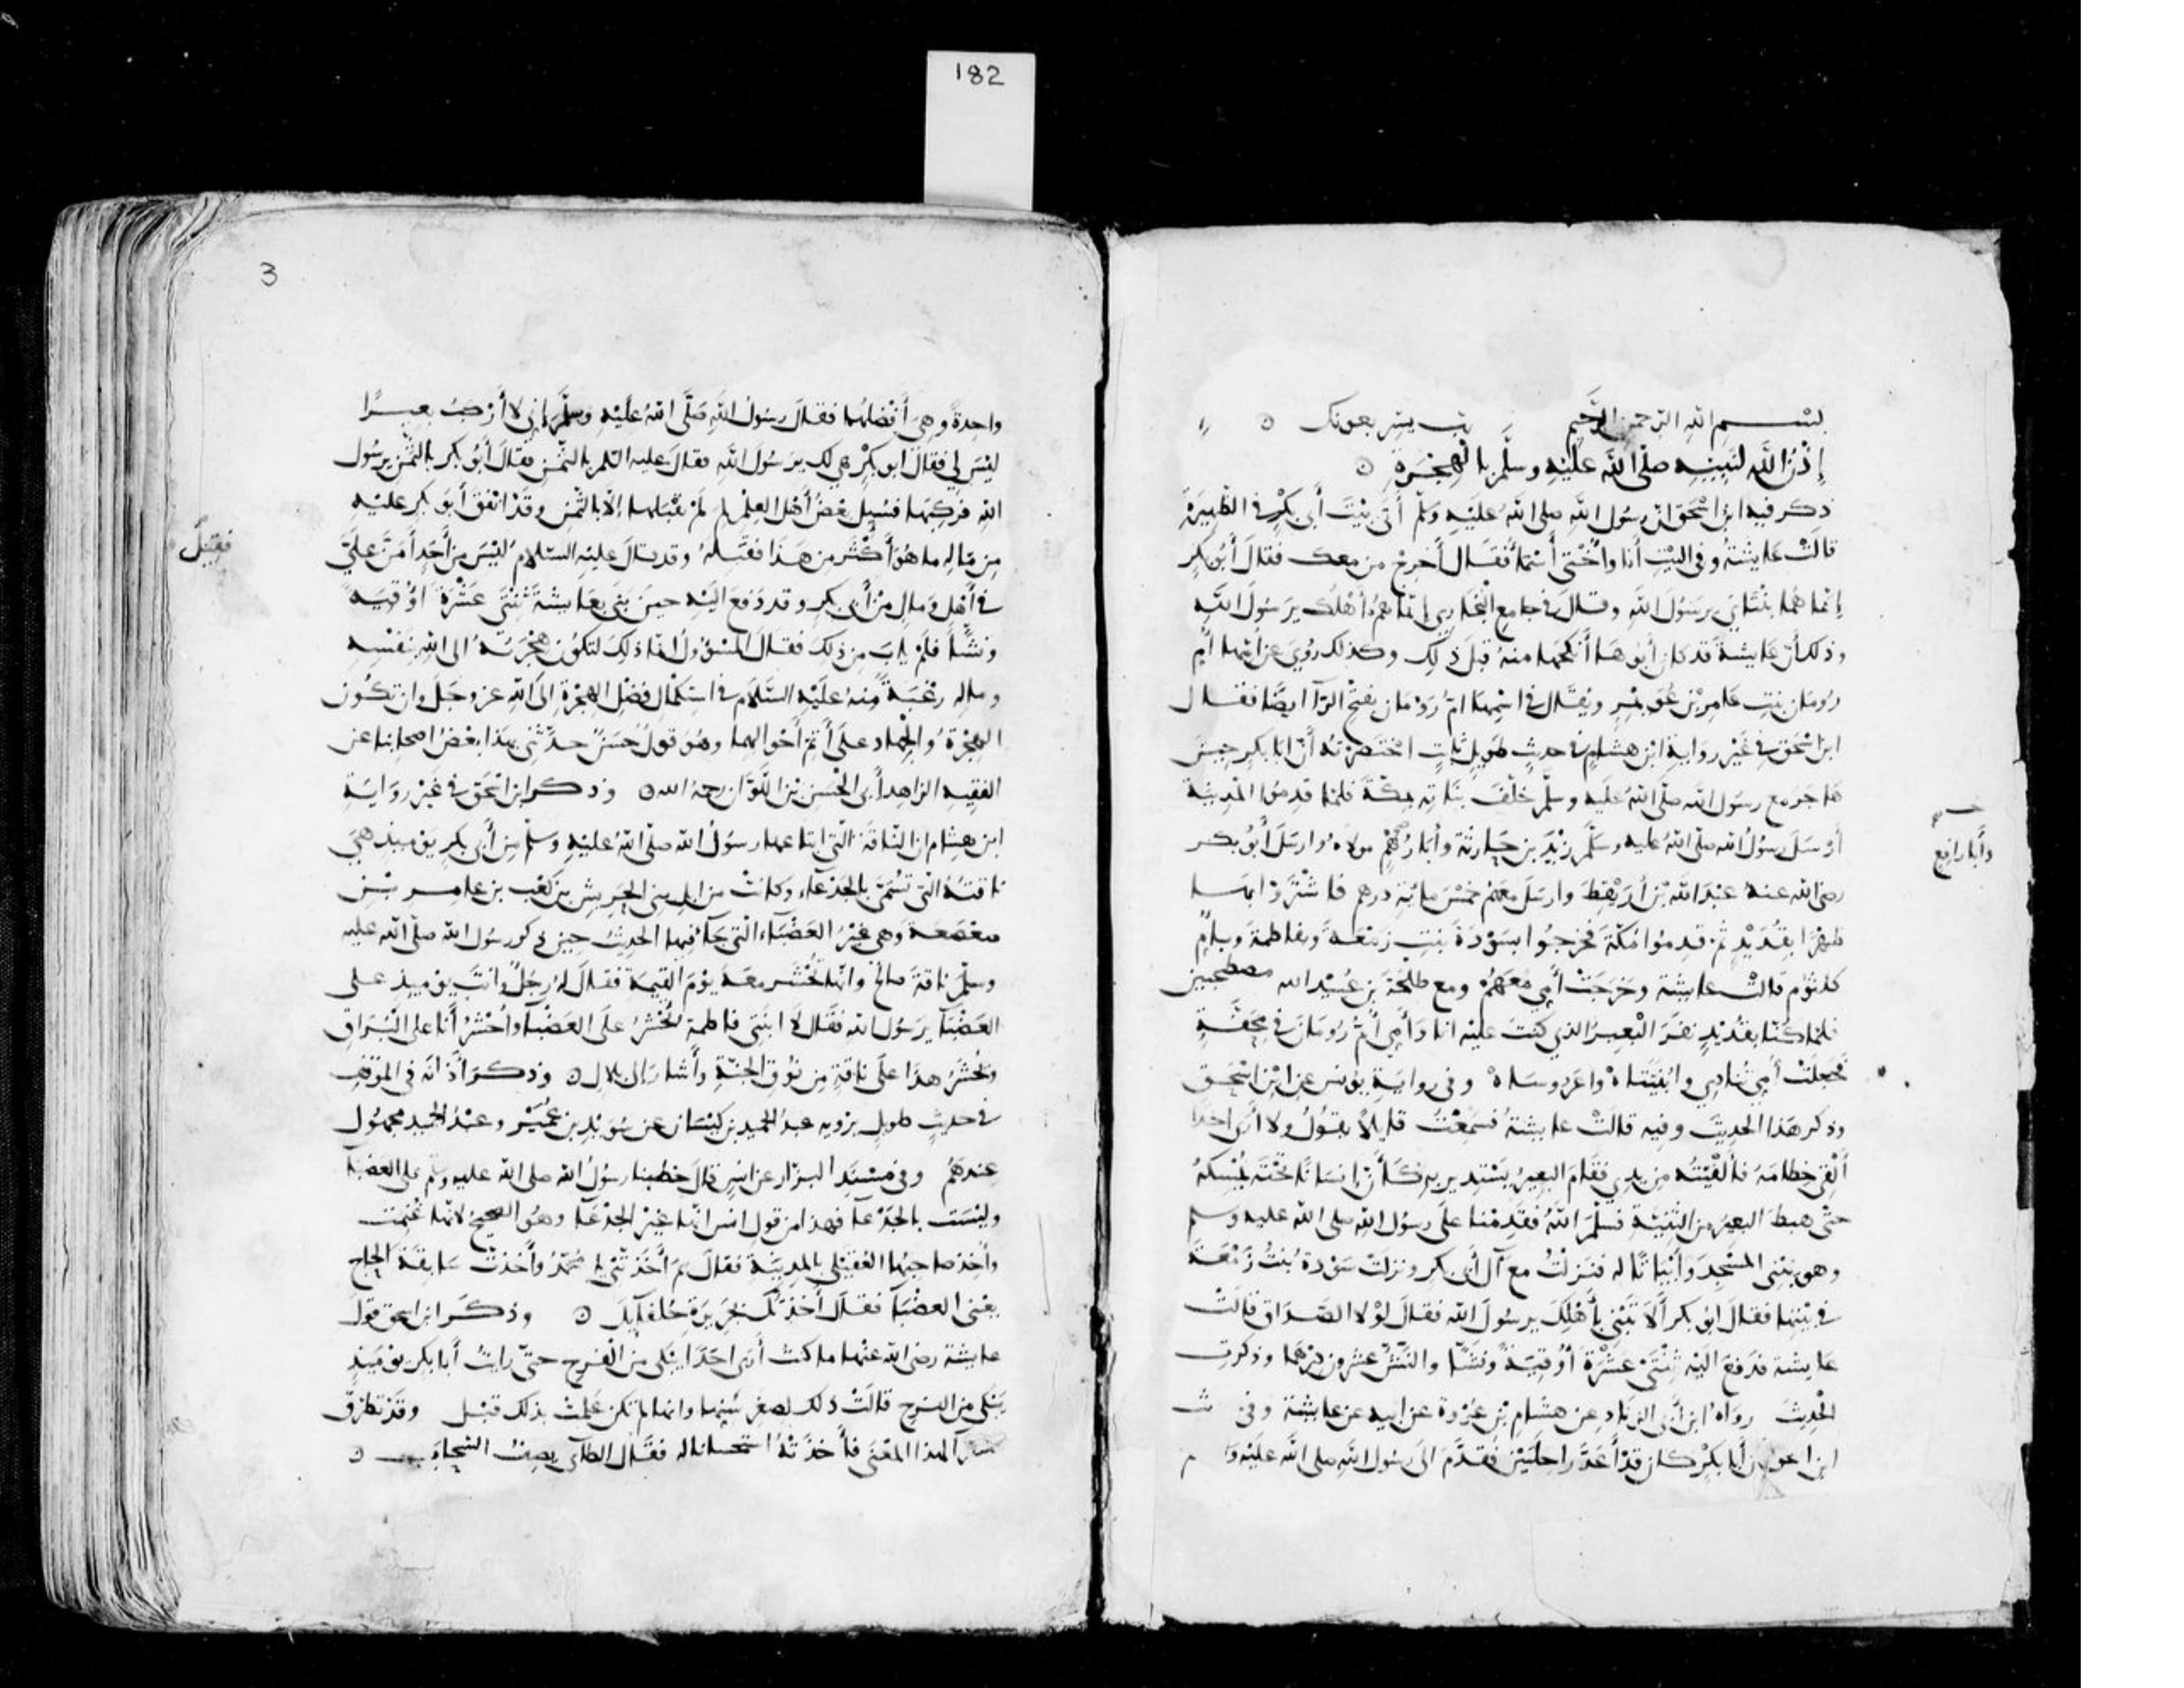 182
بسم الله الرحمن الرحيم رب يسر بعونك
إذن الله لنبيه صلى الله عليه وسلم بالهجرة
ذكر فيه ابن اسحق ان رسول الله صلى الله عليه وسلم أتى بيت أبي بكر في الظهيرة
قالت عايشة وفي البيت أنا وأختي أسماء فقال أخرج من معك فقال أبو بكر
إنما هما بنتاي يرسول الله وقال في جامع البخاري إنما هم أهلك يرسول الله
وذلك أن عايشة قد كان أبوها أنكحها منه قبل ذلك وكذلك روي عن أمها أم
رومان بنت عامر بن عويمر ويقال في اسمها أم رومان بفتح الرآ ايضا فقال
ابن اسحق في غير رواية ابن هشام في حديث طويل ثابت اختصرته أن ابا بكر حين
هاجر مع رسول الله صلى الله عليه وسلم خلف بناته بمكة فلما قدموا المدينة
أرسل رسول الله صلى الله عليه وسلم زيد بن حارثة وأبا رهم مولاه وارسل أبو بكر
وأبا رافع
رضي الله عنه عبد الله بن أريقط وارسل معهم خمس ماية درهم فاشتروا بها
ظهرا بقديد ثم قدموا مكة فخرجوا بسودة بنت زمعة وبفاطمة وبأم
كلثوم قالت عايشة وخرجت أمي معهم ومع طلحة بن عبيد الله مصطحبين
فلما كنا بقديد نفر البعير الذي كنت عليه انا وأمي أم رومان في محفة
فجعلت أمي تنادي وابنيتاه واعروساه وفي رواية يونس عن ابن اسحق
وذكر هذا الحديث وفيه قالت عايشة فسمعت قايلا يقول ولا أرى احدا
ألقي خطامه فألقيته من يدي فقام البعير يستدير به كأن انسانا تحته يمسكه
حتى هبط البعير من الثنية فسلم الله فقدمنا على رسول الله صلى الله عليه وسلم
وهو يبني المسجد وأبياتا له فنزلت مع آل أبي بكر ونزلت سودة بنت زمعة
في بيتها فقال ابو بكر ألا تبني بأهلك يرسول الله فقال لولا الصداق قالت
عايشة فدفع اليه ثنتي عشرة أوقية ونشا والنش عشرون درهما وذكرت
الحديث رواه ابن أبي الزناد عن هشام بن عروة عن ابيه عن عايشة وفي
ابن اسحق أن أبا بكر كان قد أعد راحلتين فقدم الى رسول الله صلى الله عليه
3
واحدة وهي أفضلهما فقال رسول الله صلى الله عليه وسلم إني لا أركب بعيرا
ليس لي فقال ابو بكر هي لك يرسول الله فقال عليه السلم بالثمن فقال أبو بكر بالثمن يرسول
الله فركبها فسيل بعض أهل العلم لم لم يقبلها إلا بالثمن وقد انفق أبو بكر عليه
من ماله ما هو أكثر من هذا فقبله وقد قال عليه السلام ليس من أحد أمن علي
فقبل
في أهل ومال من أبي بكر وقد دفع اليه حين بنى بعايشة ثنتي عشرة اوقية
ونشا فلم يأب من ذلك فقال المسئول انما ذلك لتكون هجرته الى الله بنفسه
وماله رغبة منه عليه السلام في استكمال فضل الهجرة إلى الله عز وجل وان تكون
الهجرة والجهاد على أتم أحوالهما وهو قول حسن حدثني بهذا بعض اصحابنا عن
الفقيه الزاهد أبي الحسن بن اللوان رحمه الله وذكر ابن اسحق في غير رواية
ابن هشام ان الناقة التي ابتاعها رسول الله صلى الله عليه وسلم من أبي بكر يوميذ هي
ناقته التي تسمى بالجدعاء وكانت من ابل بني الحريش بن كعب بن عامر بن
صعصعة وهي غير العضباء التي جآ فيها الحديث حين ذكر رسول الله صلى الله عليه
وسلم ناقة صالح وانها تحشر معه يوم القيمة فقال له رجل وانت يوميذ على
العضبآ يرسول الله فقال لا ابنتي فاطمة تحشر على العضبآ وأحشر أنا على البراق
ويحشر هذا على ناقة من نوق الجنة وأشار الى بلال وذكر أذانه في الموقف
في حديث طويل يرويه عبد الحميد بن كيسان عن سويد بن عمير وعبد الحميد مجهول
عندهم وفي مسند البزار عن انس قال خطبنا رسول الله صلى الله عليه وسلم على العضبا
وليست بالجدعا فهذا من قول انس انها غير الجدعا وهو الصحيح لانها غنمت
وأخذ صاحبها العقيلي بالمدينة فقال بم أخذتني يا محمد وأخذت سابقة الحاج
يعني العضبآ فقال أخذتك بجريرة حلفايك وذكر ابن اسحق قول
عايشة رضي الله عنها ما كنت أرى احدا يبكي من الفرح حتى رايت أبا بكر يوميذ
يبكي من الفرح قالت ذلك لصغر سنها وانها لم تكن علمت بذلك قبل وقد تطرق
لهذا المعنى فأخذته استحسانا له فقال الطآي يصف السحاب